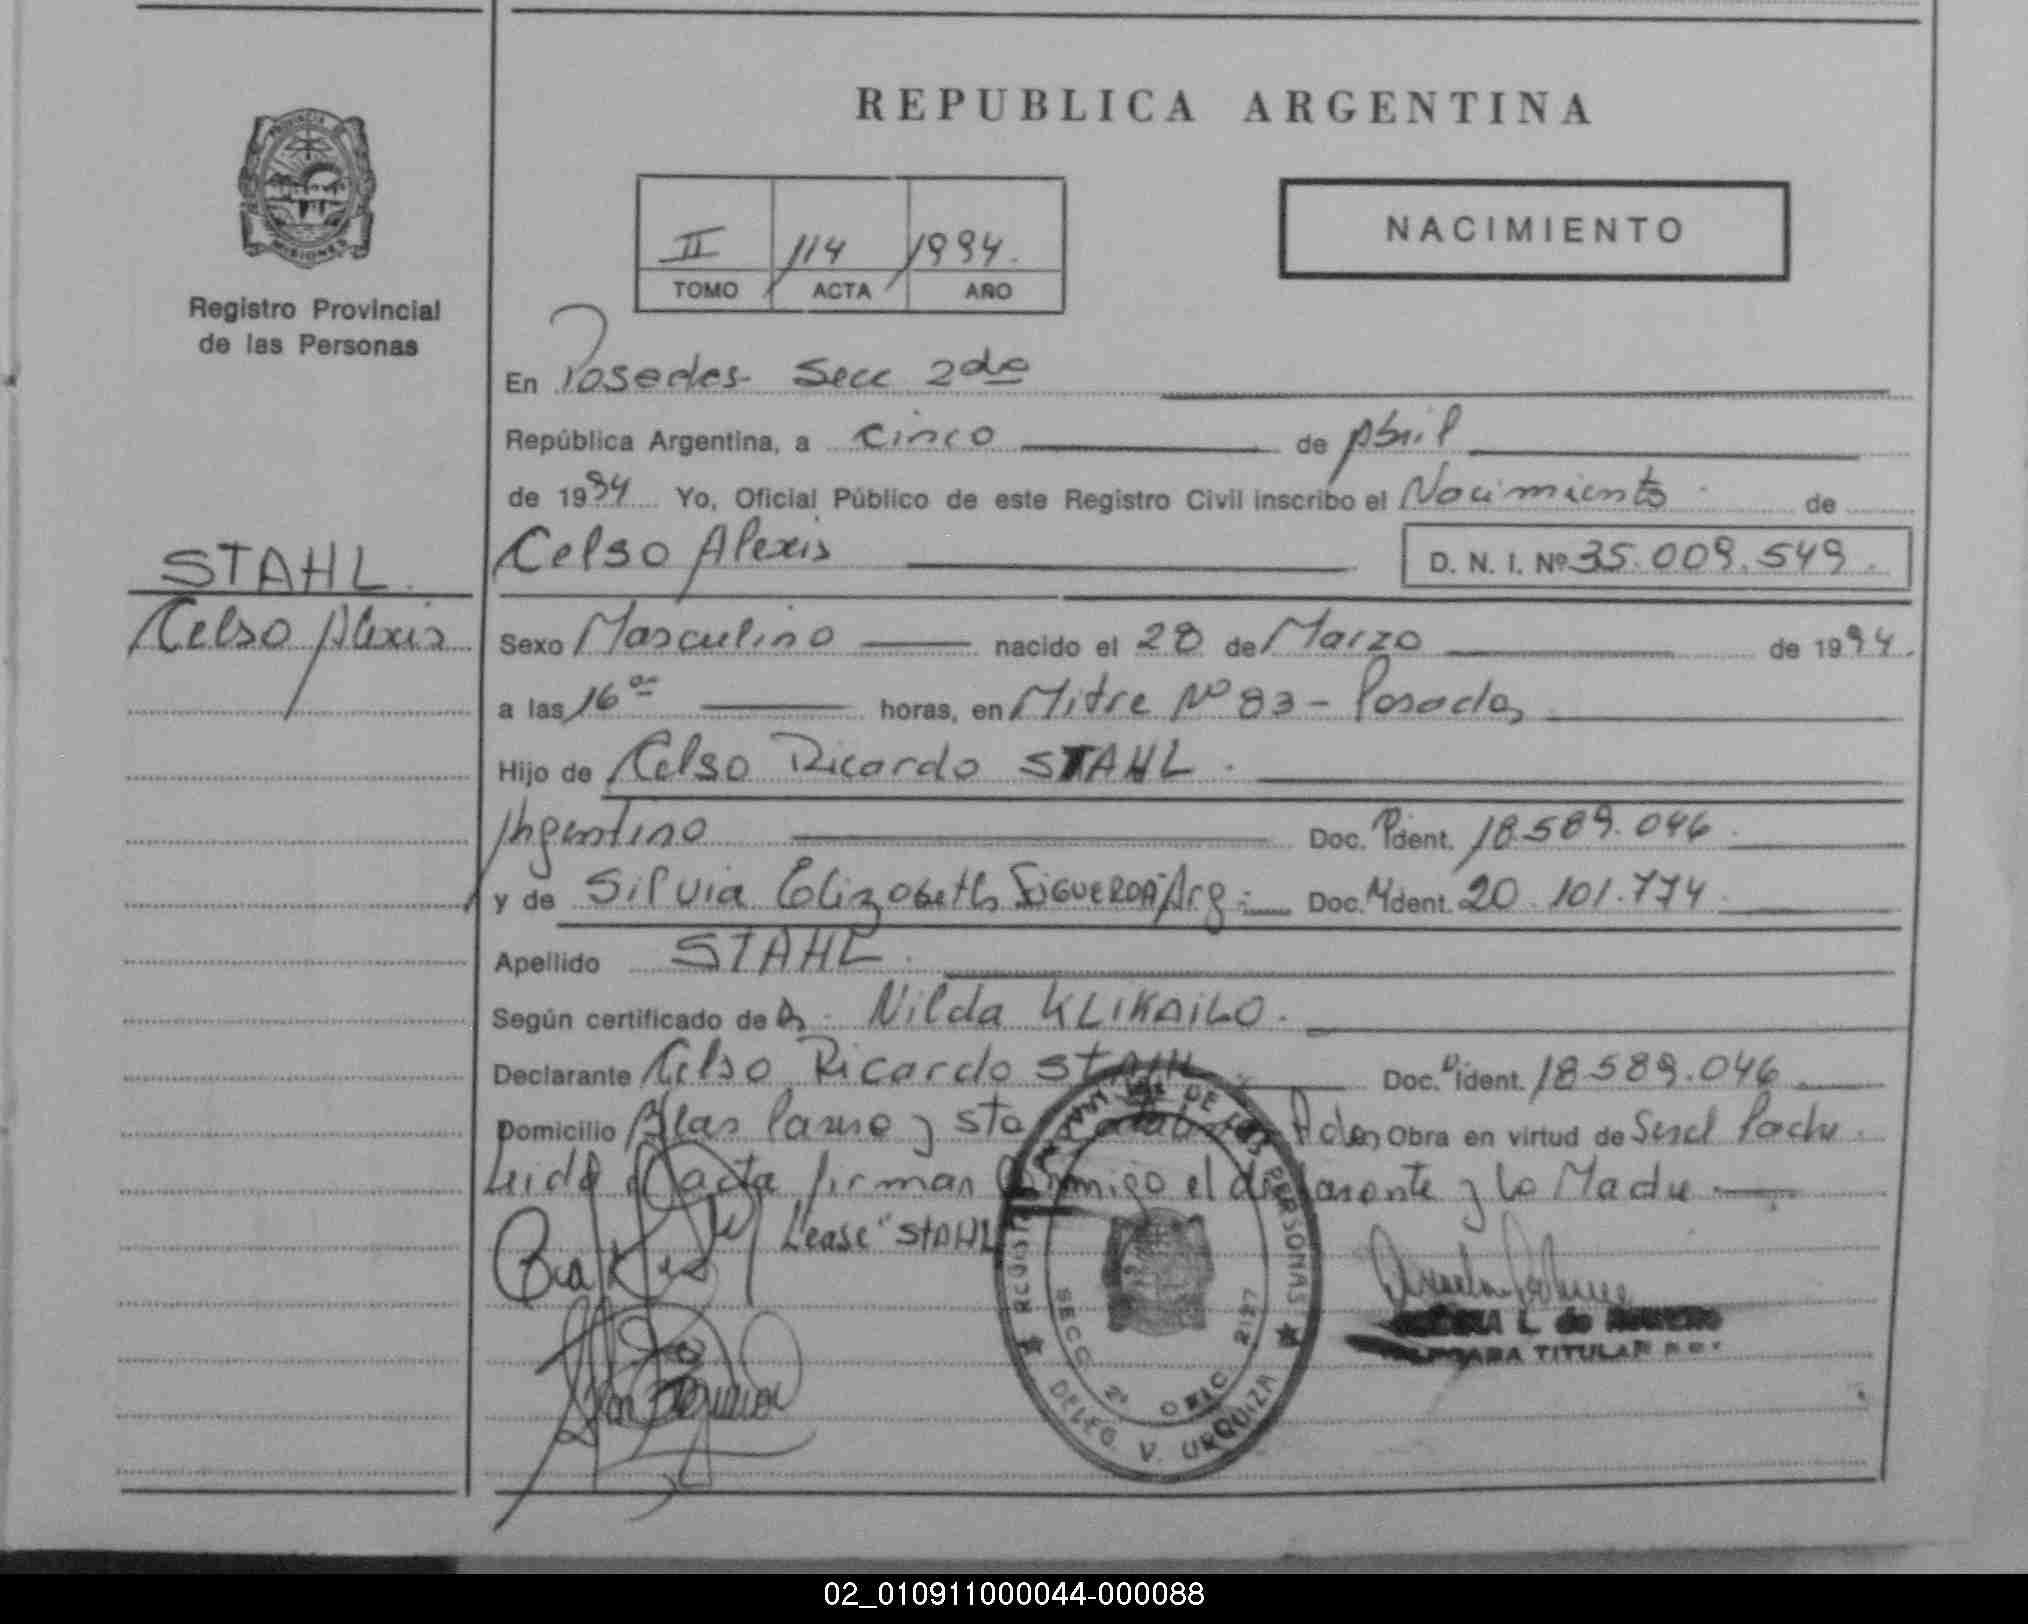 REPUBLICA ARGENTINA
PROVINCIA DE
MISIONES
Registro Provincial
de las Personas
II 114 1994.
TOMO ACTA AÑO
NACIMIENTO
En Posadas Secc 2da
República Argentina, a cinco de Abril
de 1994 Yo, Oficial Público de este Registro Civil inscribo el Nacimiento de
STAHL
Celso Alexis
Celso Alexis D. N. I. Nº 35.009.549.
Sexo Masculino nacido el 28 de Marzo de 1994.
a las 16 horas, en Mitre Nº 83 - Posadas
Hijo de Celso Ricardo STAHL.
Argentino Doc. Ident. 18.589.046
y de Silvia Elizabeth FIGUEROA Arg. Doc. Ident. 20.101.774
Apellido STAHL.
Según certificado de Nilda KLIKAILO.
Declarante Celso Ricardo STAHL Doc. Ident. 18.589.046
Domicilio Blas Parera y Sta Obra en virtud de
Leida acta firman conmigo el declarante y la Madre
Lease "STAHL
REGISTRO DE LAS PERSONAS
SECC. 2ª OFIC. 2127
DELEG. V. URQUIZA
L. de
TITULAR
02_010911000044-000088